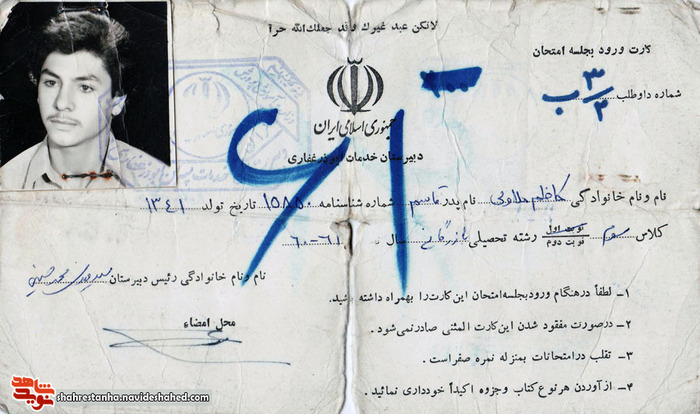 لاتكن عبد غيرك وقد جعلك الله حرا
کارت ورود بجلسه امتحان
شماره داوطلب ۳/۲ ب
جمهوری اسلامی ایران
دبیرستان خدمات ابوذر غفاری
۶۱
نام و نام خانوادگی کاظم نام پدر قاسم شماره شناسنامه ۱۵۸۵۰ تاریخ تولد ۱۳۴۱
کلاس سوم نوبت اول نوبت دوم رشته تحصیلی بازرگانی سال ۶۱-۶۰
نام و نام خانوادگی رئیس دبیرستان
محل امضاء
۱- لطفاً در هنگام ورود بجلسه امتحان این کارت را بهمراه داشته باشید.
۲- در صورت مفقود شدن این کارت المثنی صادر نمی‌شود.
۳- تقلب در امتحانات بمنزله نمره صفر است.
۴- از آوردن هر نوع کتاب و جزوه اکیداً خودداری نمائید.
نوید شاهد
shahrestanha.navideshahed.com